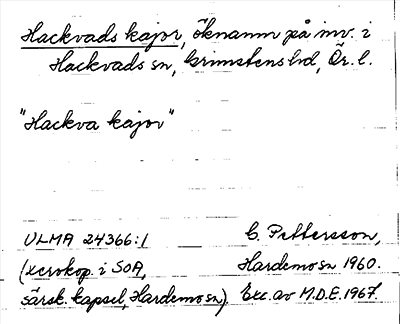 Hackvads kajor, öknamn på inv. i
Hackvads sn, Grimstens hd, Ör. l.
"Hackva kajor"
ULMA 24366:1
C. Pettersson,
(xerokop. i SOA,
Hardemo sn 1960.
särsk. kapsel, Hardemo sn).
Exc. av M.D.E. 1967.